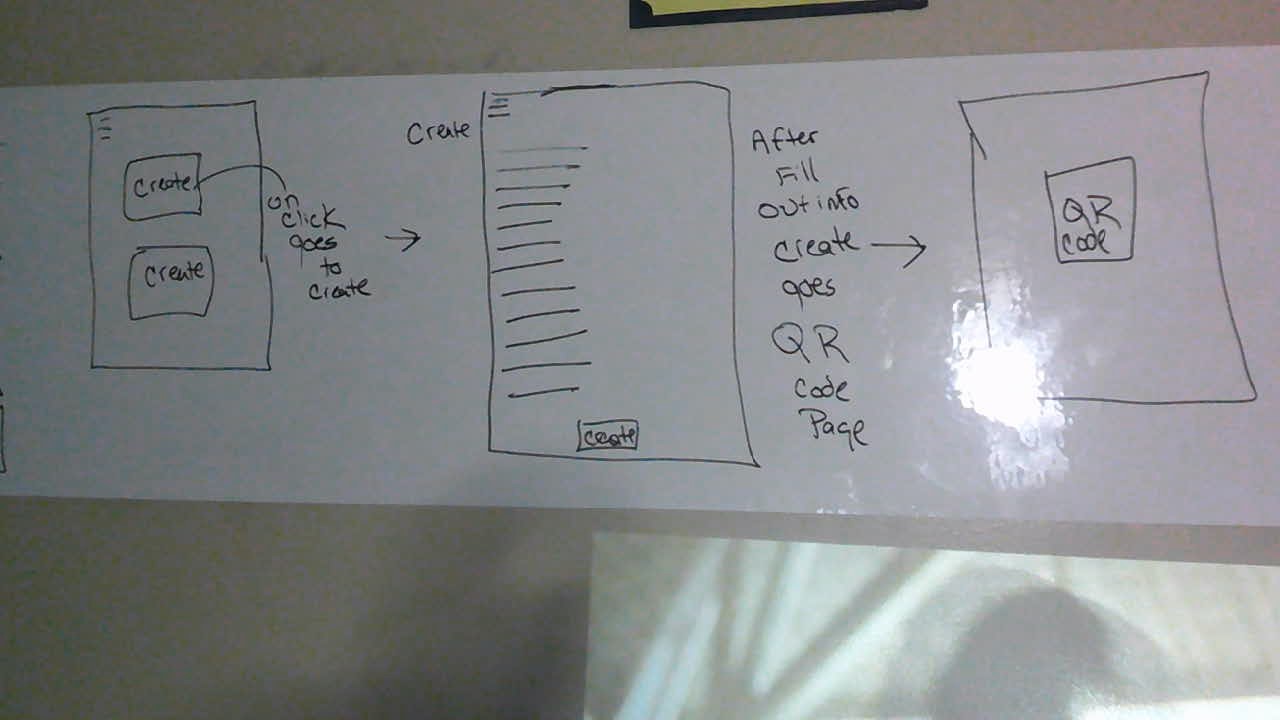 Create
Create
on
click
goes
to
create
Create
create
After
Fill
out info
create
goes
QR
code
Page
QR
code